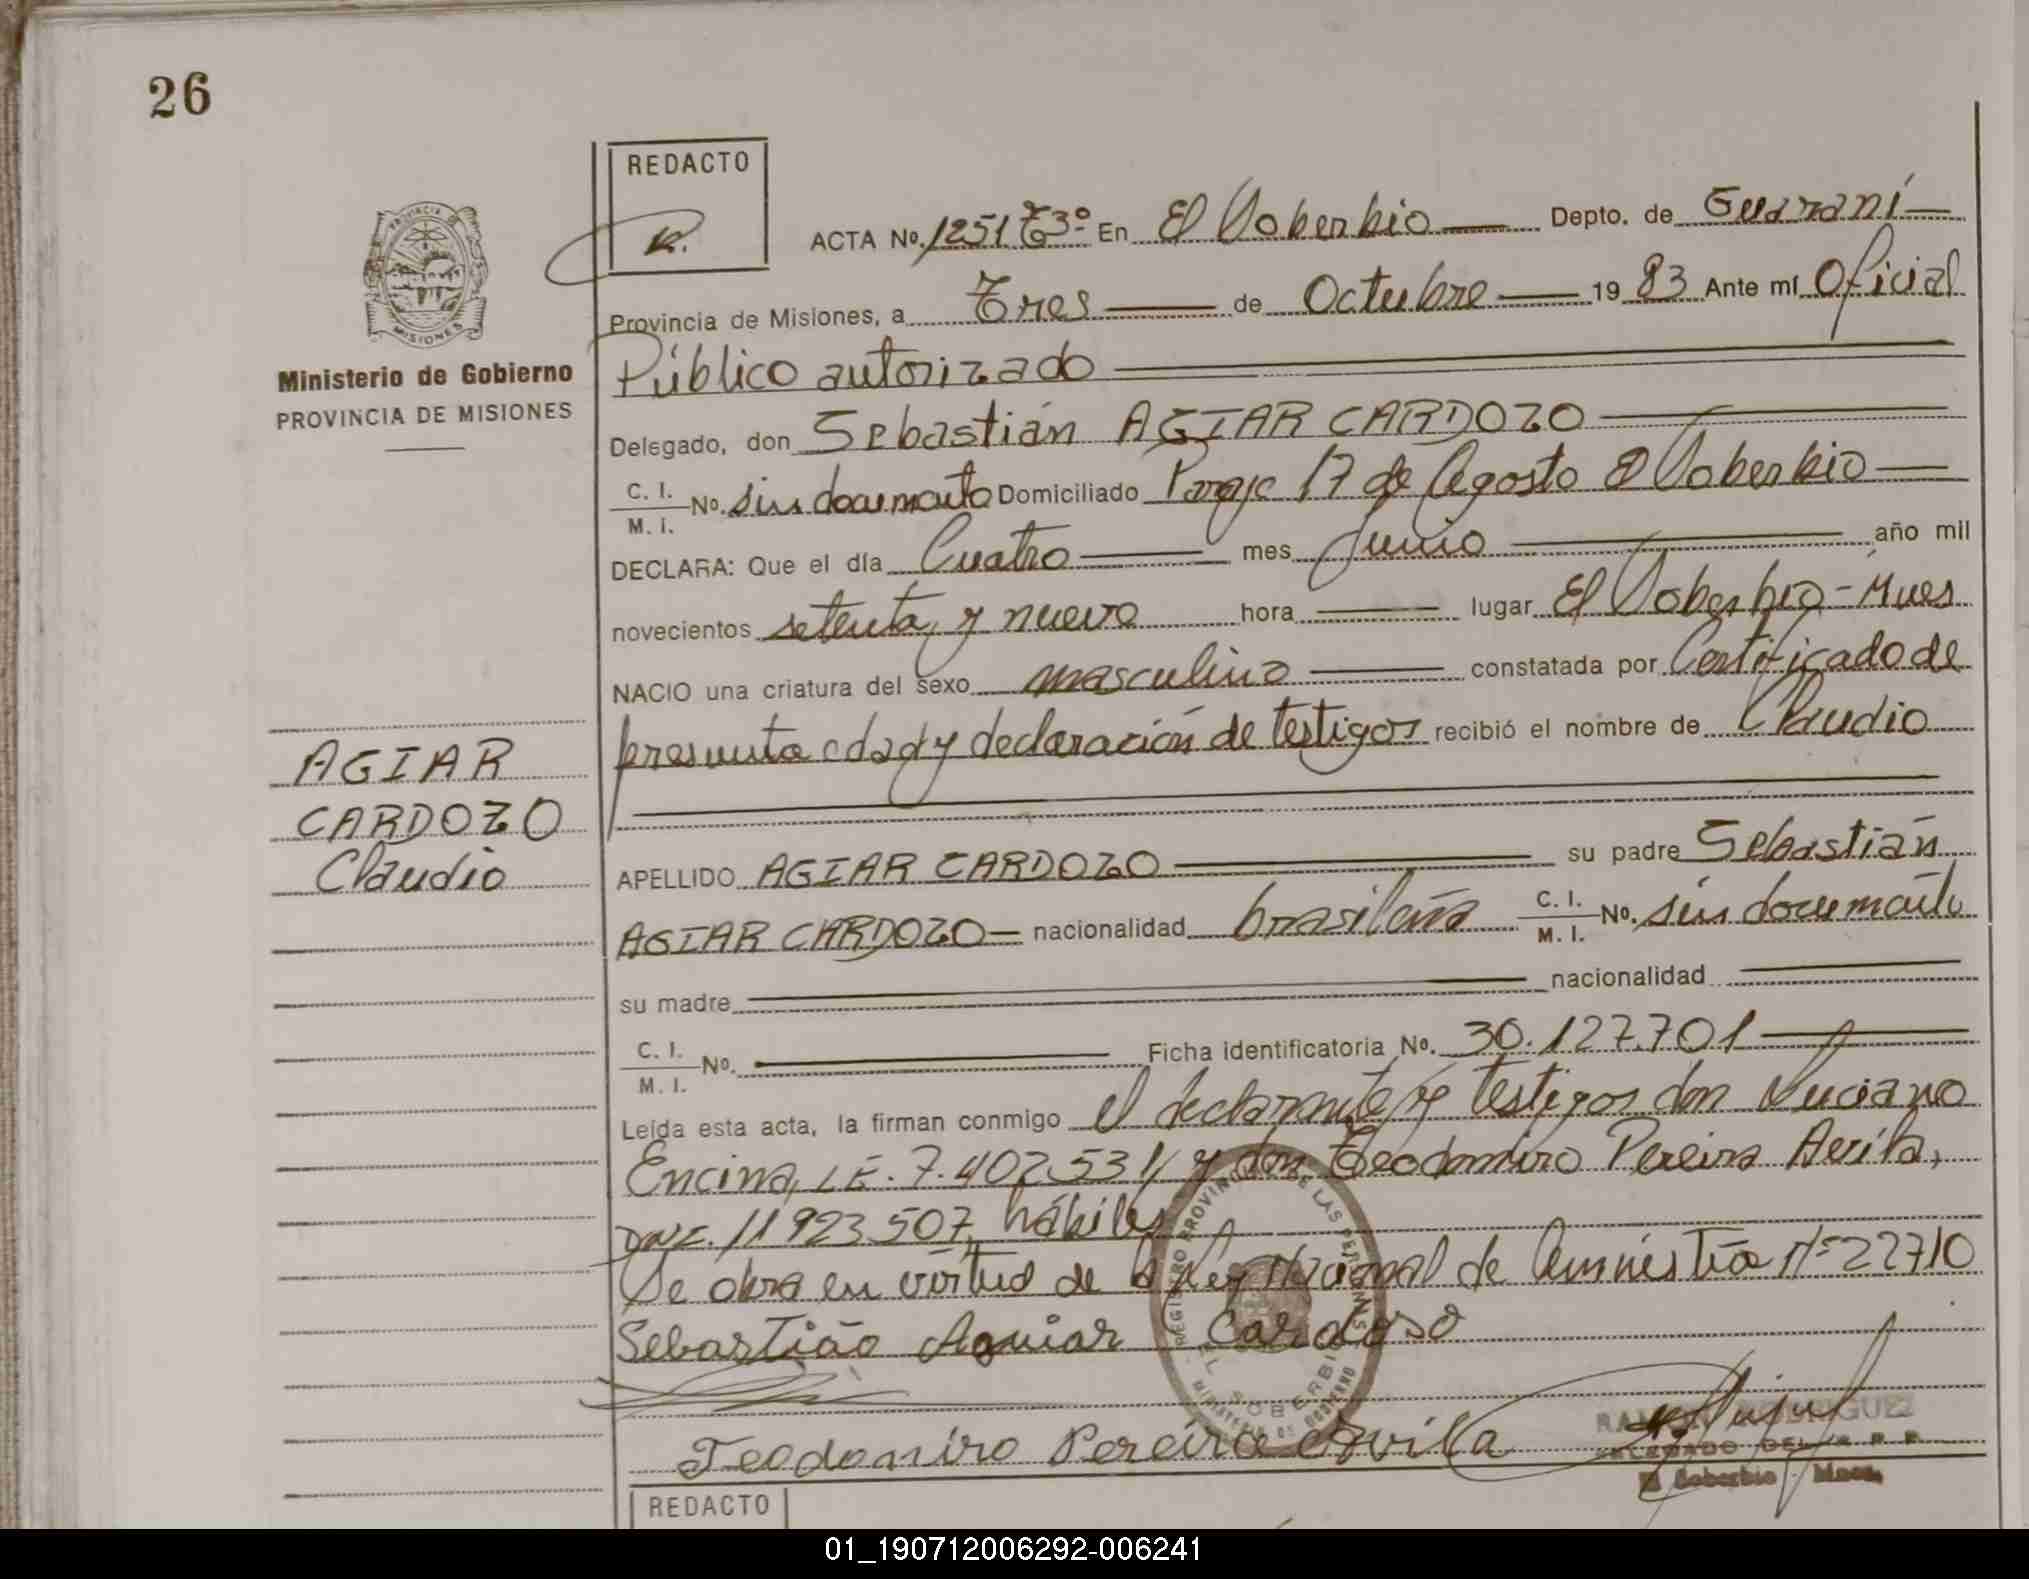 26
REDACTO
ACTA No. 1251 Tº3º En El Soberbio Depto. de Guaraní
Provincia de Misiones, a Tres de Octubre 1983 Ante mí Oficial
Público autorizado
Delegado, don Sebastián AGIAR CARDOZO
C. I.
M. I. No. sin documento Domiciliado Paraje 17 de Agosto El Soberbio
DECLARA: Que el día Cuatro mes Junio año mil
novecientos setenta y nueve hora lugar El Soberbio - Mnes
NACIO una criatura del sexo masculino constatada por Certificado de
presunta edad y declaración de testigos recibió el nombre de Claudio
APELLIDO AGIAR CARDOZO su padre Sebastián
AGIAR CARDOZO nacionalidad brasileña C. I.
M. I. No. sin documento
su madre nacionalidad
C. I.
M. I. No. Ficha identificatoria No. 30.127.701
Leída esta acta, la firman conmigo el declarante y testigos don Luciano
Encina, L.E. 7.402.531, y don Teodomiro Pereira Avila,
DNI. 11.923.507, hábiles
Se obra en virtud de la Ley Nacional de Amnistía Nº 22710
Sebastião Aguiar Cardoso
Teodomiro Pereira Avila
Ministerio de Gobierno
PROVINCIA DE MISIONES
AGIAR
CARDOZO
Claudio
PROVINCIA DE
MISIONES
REGISTRO PROVINCIAL DE LAS PERSONAS
EL SOBERBIO
MINISTERIO DE GOBIERNO
RAMON RODRIGUEZ
DELEGADO DEL R. P. P.
El Soberbio - Mnes.
REDACTO
01_190712006292-006241